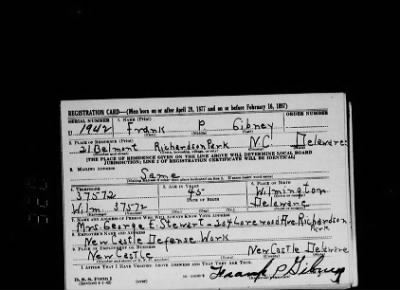 REGISTRATION CARD—(Men born on or after April 28, 1877 and on or before February 16, 1897)
SERIAL NUMBER 1. NAME (Print) ORDER NUMBER
U 1942 Frank P. Gibney
2. PLACE OF RESIDENCE (Print)
21 Belmont Richardson Park N.C. Delaware
[THE PLACE OF RESIDENCE GIVEN ON THE LINE ABOVE WILL DETERMINE LOCAL BOARD
JURISDICTION; LINE 2 OF REGISTRATION CERTIFICATE WILL BE IDENTICAL]
3. MAILING ADDRESS
Same
4. TELEPHONE 5. AGE IN YEARS 6. PLACE OF BIRTH
37572 45 Wilmington
DATE OF BIRTH
Wilm 37572 Delaware
7. NAME AND ADDRESS OF PERSON WHO WILL ALWAYS KNOW YOUR ADDRESS
Mrs. George E. Stewart - Ave Richardson
Park
8. EMPLOYER'S NAME AND ADDRESS
New Castle Defense Work
9. PLACE OF EMPLOYMENT OR BUSINESS
New Castle New Castle Delaware
I AFFIRM THAT I HAVE VERIFIED ABOVE ANSWERS AND THAT THEY ARE TRUE.
D. S. S. Form 1 (over) Frank P. Gibney